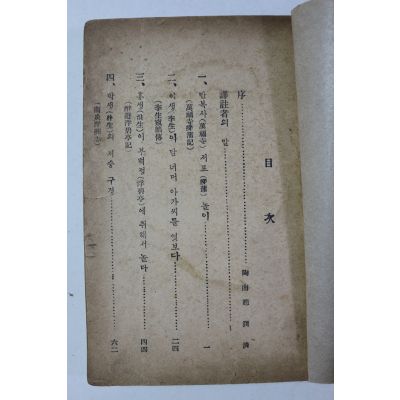 目次
序 ………… 陶南 趙潤濟
譯註者의 말
一、 만복사(萬福寺) 저포(樗蒲) 놀이 ………… 一
(萬福寺樗蒲記)
二、 이생(李生)이 담 너머 아가씨를 엿보다 ………… 二四
(李生窺牆傳)
三、 홍생(洪生)이 부벽정(浮碧亭)에 취해서 놀다 ………… 四四
(醉遊浮碧亭記)
四、 박생(朴生)의 저승 구경 ………… 六二
(南炎浮洲志)